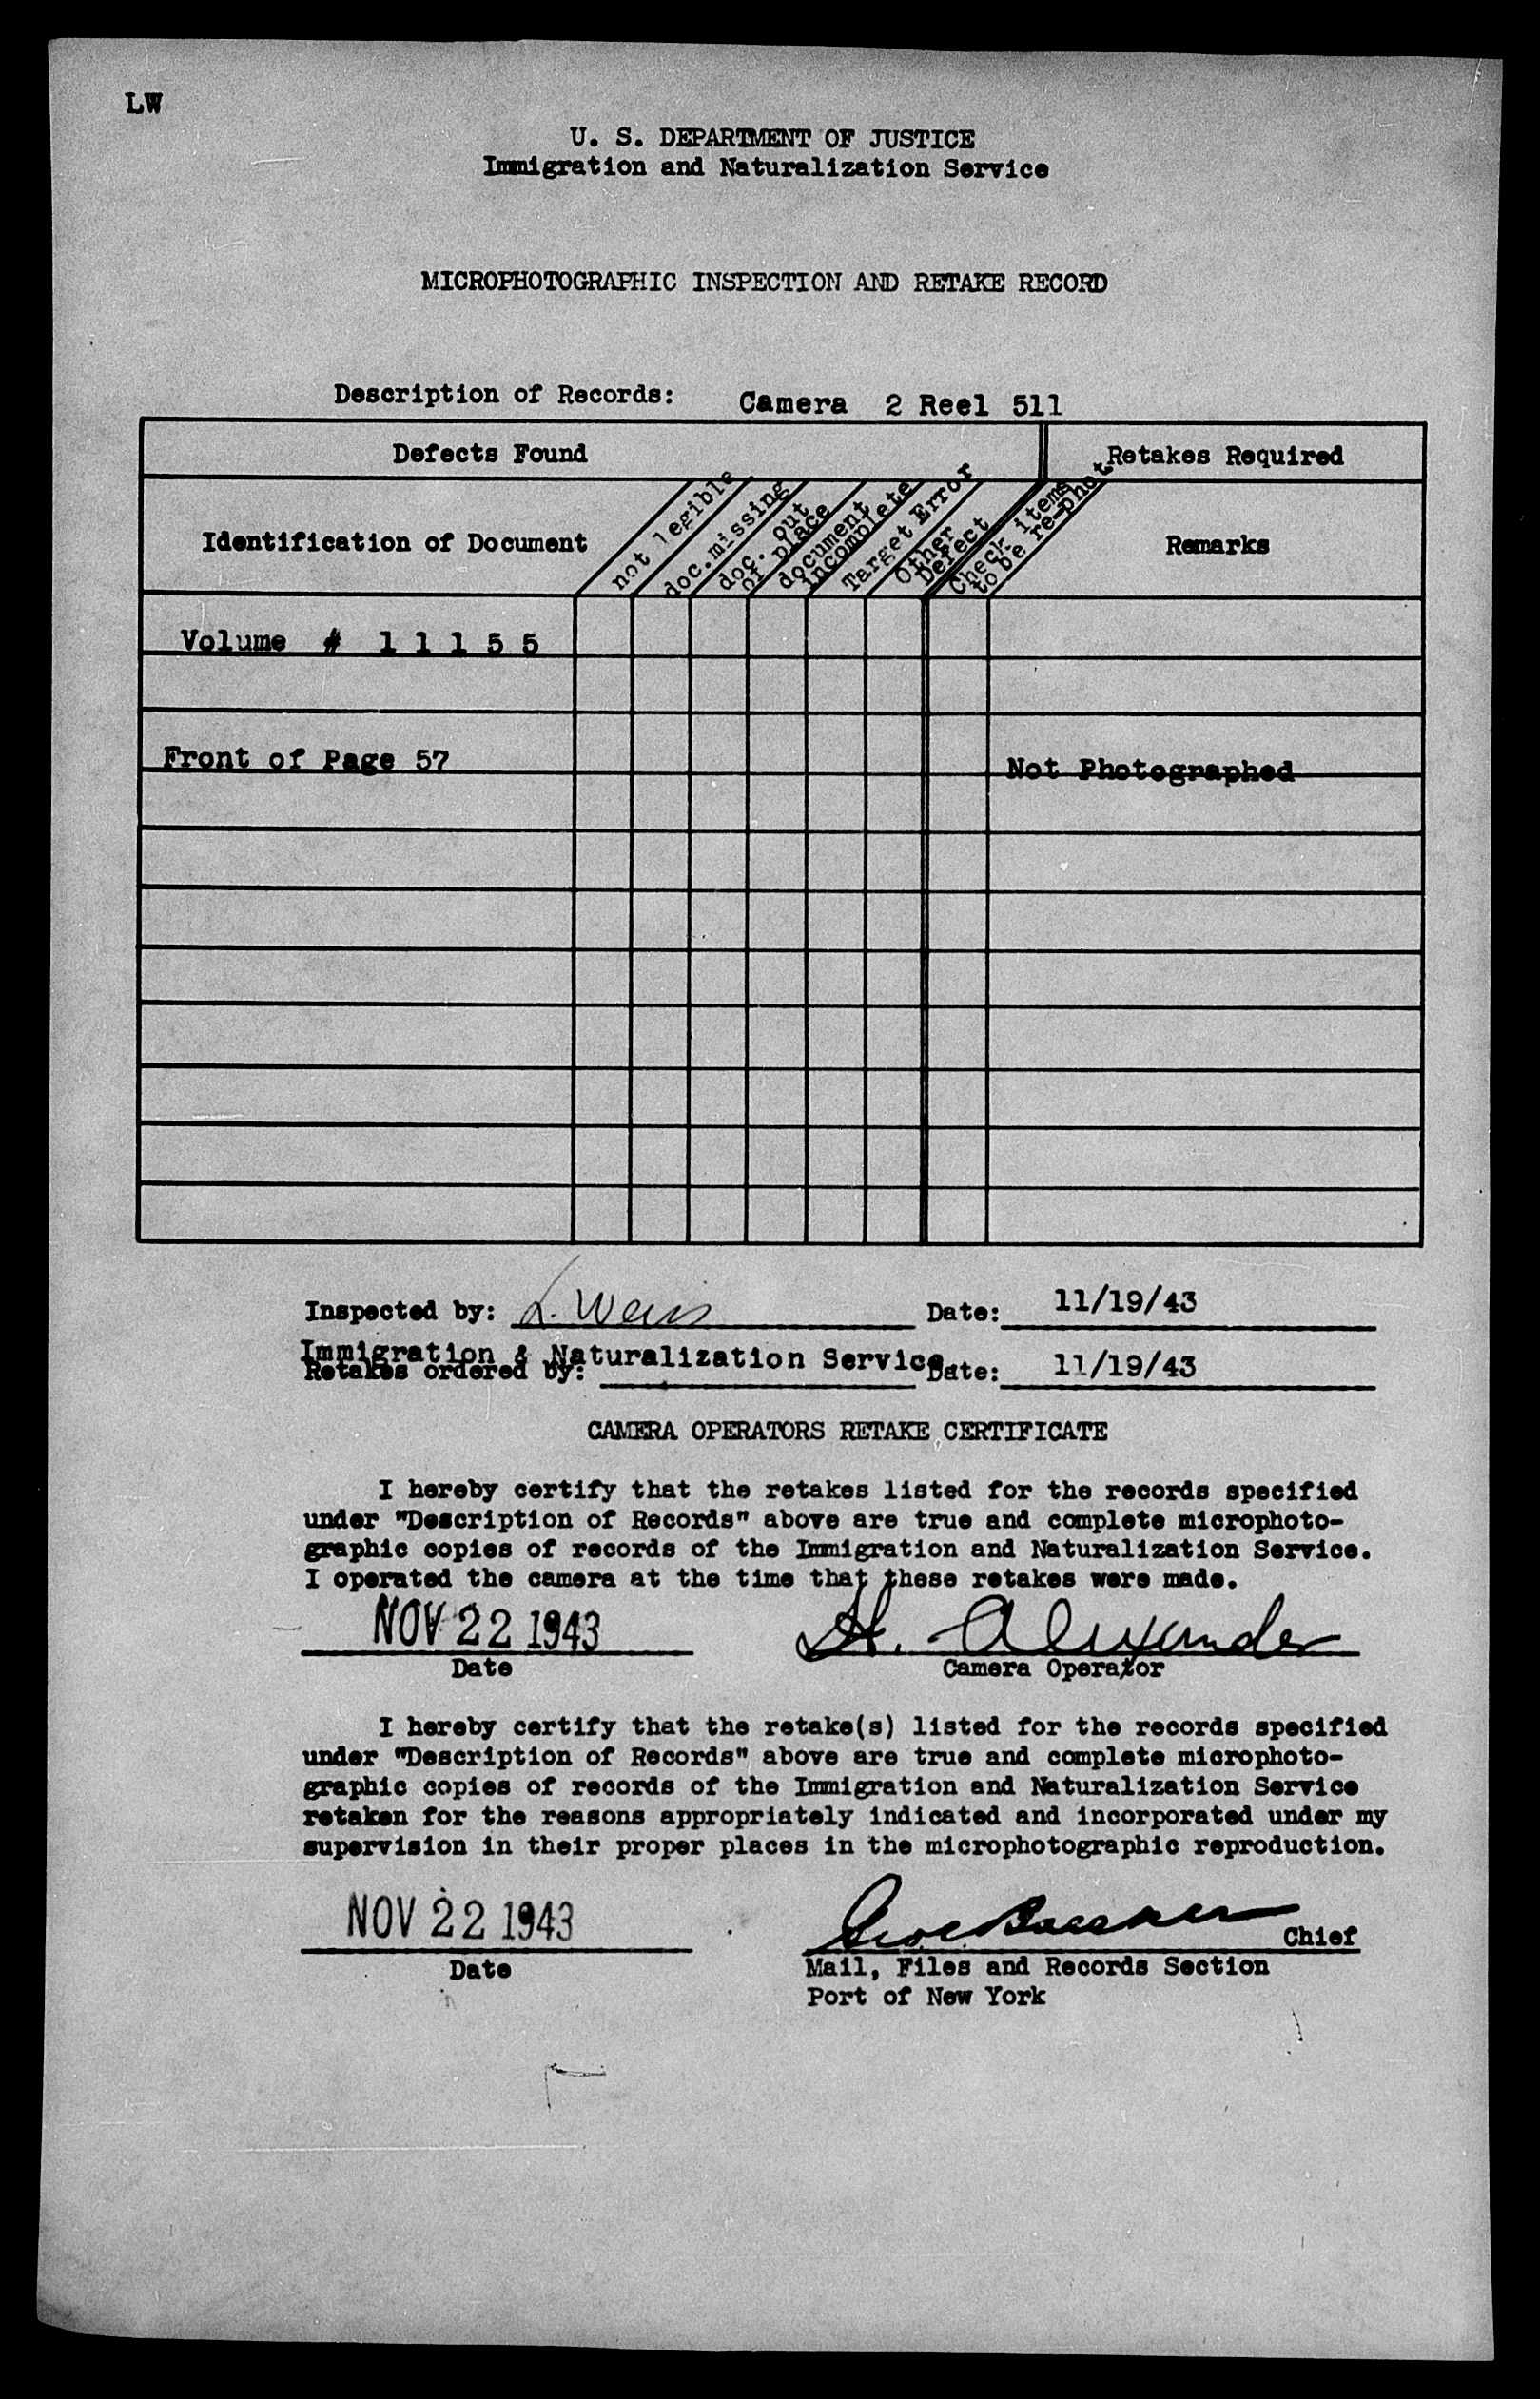 LW
U. S. DEPARTMENT OF JUSTICE
Immigration and Naturalization Service
MICROPHOTOGRAPHIC INSPECTION AND RETAKE RECORD
Description of Records: Camera 2 Reel 511
Defects Found
Retakes Required
Identification of Document
not legible
doc.missing
doc. out
of place
document
incomplete
Target Error
Other
Defect
Check items
to be re-phot.
Remarks
Volume # 1 1 1 5 5
Front of Page 57
Not Photographed
Inspected by: L. Weis Date: 11/19/43
Immigration & Naturalization Service
Retakes ordered by: Date: 11/19/43
CAMERA OPERATORS RETAKE CERTIFICATE
I hereby certify that the retakes listed for the records specified
under "Description of Records" above are true and complete microphoto-
graphic copies of records of the Immigration and Naturalization Service.
I operated the camera at the time that these retakes were made.
NOV 22 1943 H. Alexander
Date Camera Operator
I hereby certify that the retake(s) listed for the records specified
under "Description of Records" above are true and complete microphoto-
graphic copies of records of the Immigration and Naturalization Service
retaken for the reasons appropriately indicated and incorporated under my
supervision in their proper places in the microphotographic reproduction.
NOV 22 1943 Chief
Date Mail, Files and Records Section
Port of New York